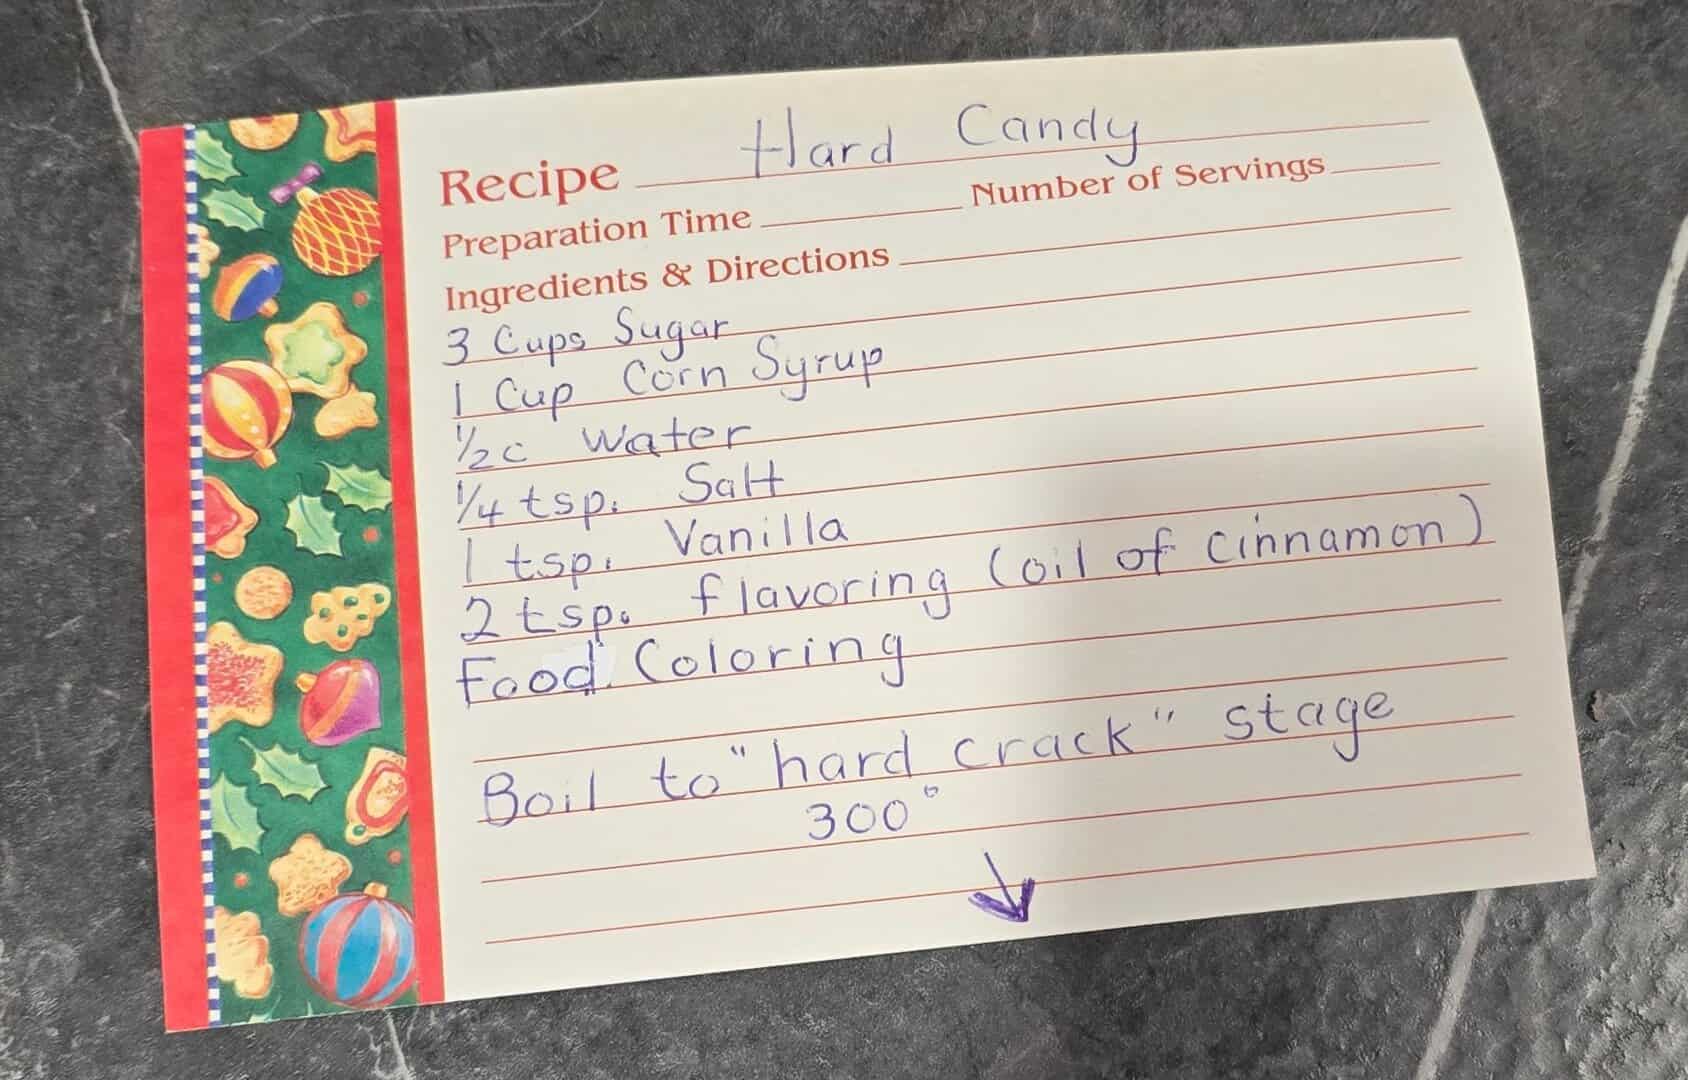 Recipe Hard Candy
Preparation Time Number of Servings
Ingredients & Directions
3 Cups Sugar
1 Cup Corn Syrup
1/2 c water
1/4 tsp. Salt
1 tsp. Vanilla
2 tsp. flavoring (oil of cinnamon)
Food Coloring
Boil to "hard crack" stage
300°